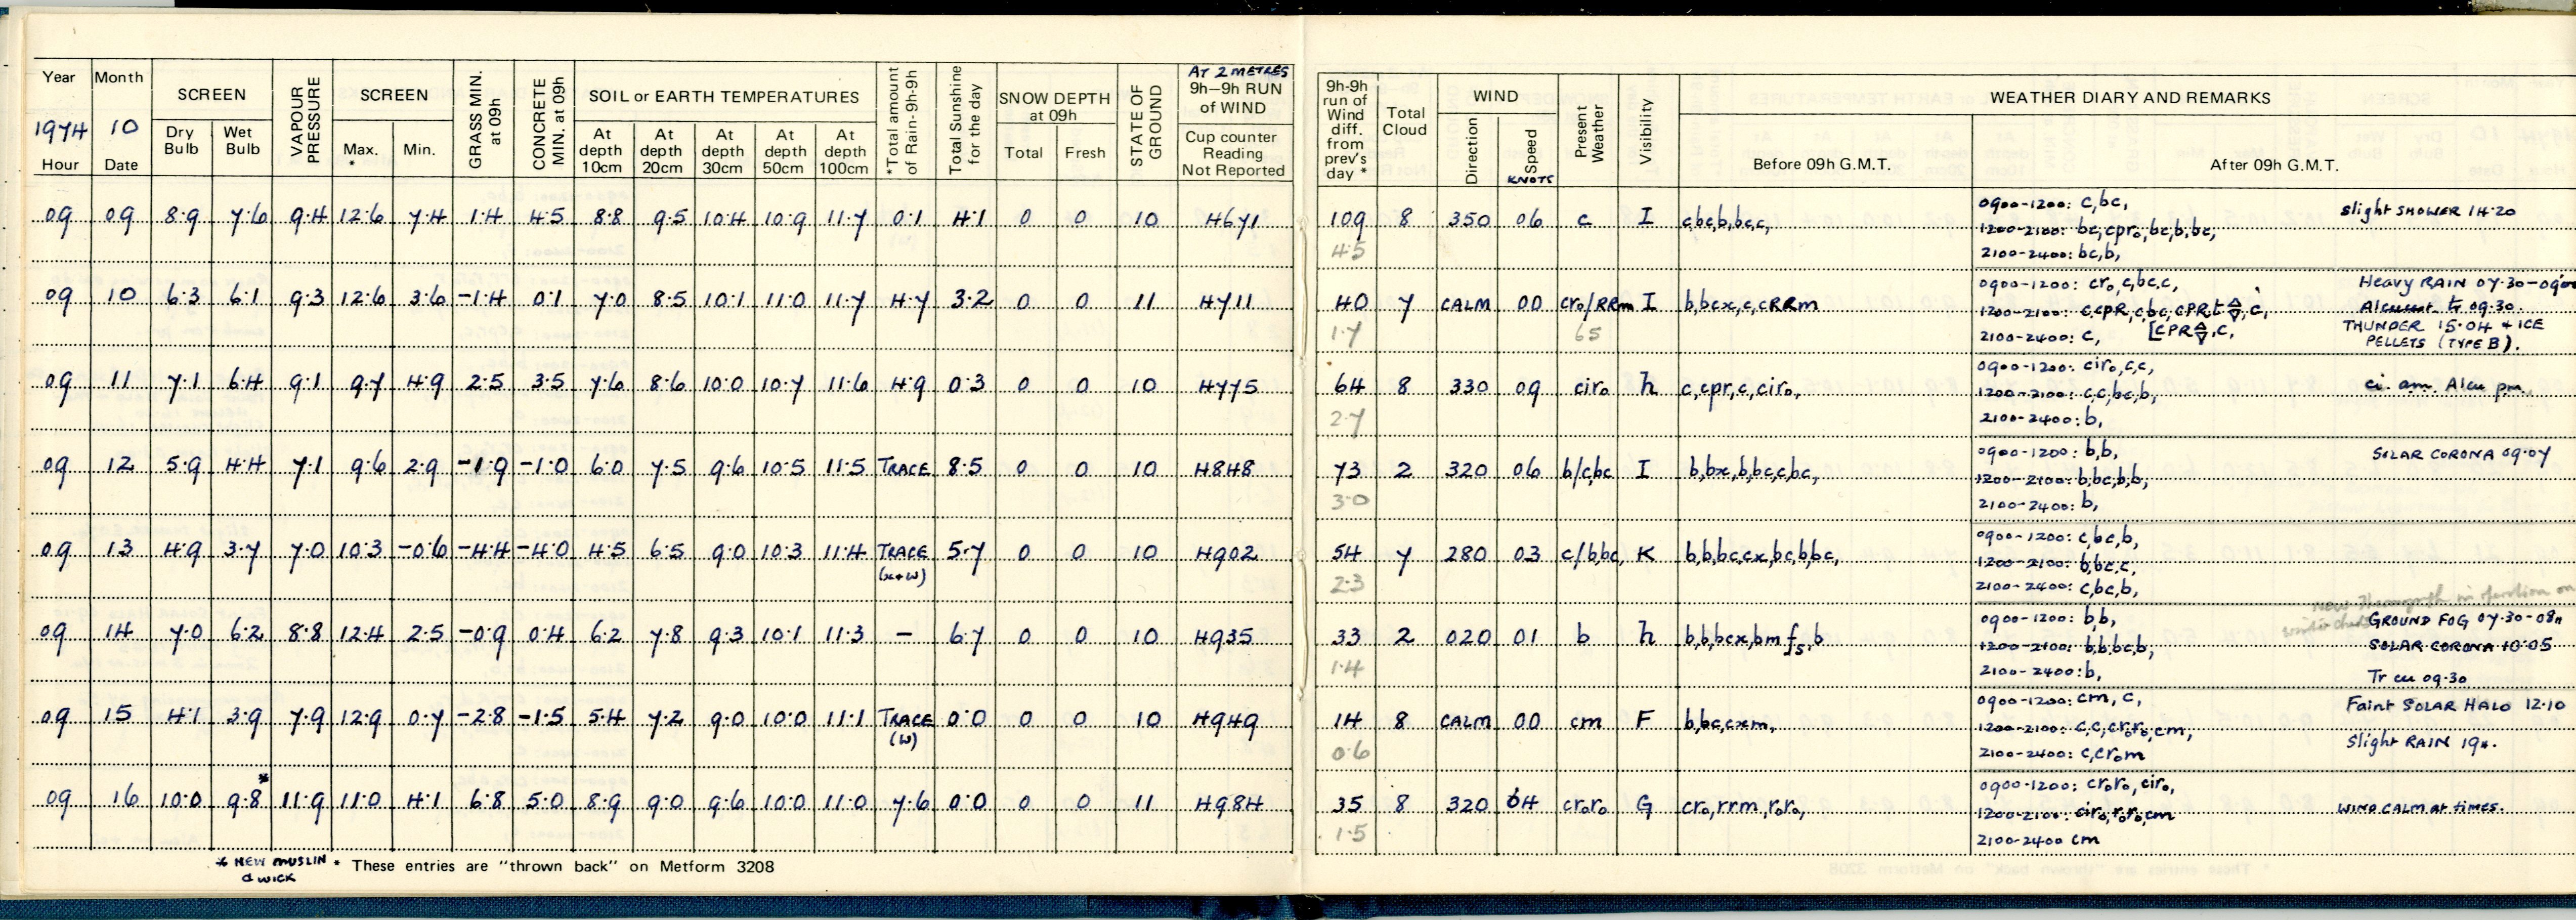 Year Month SCREEN VAPOUR PRESSURE SCREEN GRASS MIN. at 09h CONCRETE MIN. at 09h SOIL or EARTH TEMPERATURES *Total amount of Rain-9h-9h Total Sunshine for the day SNOW DEPTH at 09h STATE OF GROUND AT 2 METRES 9h–9h RUN of WIND
1974 10 Dry Bulb Wet Bulb Max. * Min. At depth 10cm At depth 20cm At depth 30cm At depth 50cm At depth 100cm Total Fresh Cup counter Reading Not Reported
Hour Date
9h-9h run of Wind diff. from prev's day * Total Cloud WIND Direction Speed KNOTS Present Weather Visibility WEATHER DIARY AND REMARKS
Before 09h G.M.T. After 09h G.M.T.
09 09 8·9 7·6 9·4 12·6 7·4 1·4 4·5 8·8 9·5 10·4 10·9 11·7 0·1 4·1 0 0 10 4671 109 8 350 06 c I c,bc,b,bc,c,
4·5
0900-1200: c,bc, slight SHOWER 14·20
1200-2100: bc,cpr₀,bc,b,bc,
2100-2400: bc,b,
09 10 6·3 6·1 9·3 12·6 3·6 -1·4 0·1 7·0 8·5 10·1 11·0 11·7 4·7 3·2 0 0 11 4711 40 7 CALM 00 cr₀/RRm I b,bcx,c,cRRm
1·7 65
0900-1200: cr₀,c,bc,c, Heavy RAIN 07·30-0900
1200-2100: c,cpR,c,bc,cPRt,c, 09·30.
[cPR,c, THUNDER 15·04 + ICE
2100-2400: c, PELLETS (TYPE B).
09 11 7·1 6·4 9·1 9·7 4·9 2·5 3·5 7·6 8·6 10·0 10·7 11·6 4·9 0·3 0 0 10 4775 64 8 330 09 cir₀ h c,cpr,c,cir₀,
2·7
0900-1200: cir₀,c,c, ci. am. Alcu pm.
1200-2100: c,c,bc,b,
2100-2400: b,
09 12 5·9 4·4 7·1 9·6 2·9 -1·9 -1·0 6·0 7·5 9·6 10·5 11·5 TRACE 8·5 0 0 10 4848 73 2 320 06 b/c,bc I b,bx,b,bc,c,bc,
3·0
0900-1200: b,b, SOLAR CORONA 09·07
1200-2100: b,bc,b,b,
2100-2400: b,
09 13 4·9 3·7 7·0 10·3 -0·6 -4·4 -4·0 4·5 6·5 9·0 10·3 11·4 TRACE (x+w) 5·7 0 0 10 4902 54 7 280 03 c/b,bc, K b,b,bc,cx,bc,b,bc,
2·3
0900-1200: c,bc,b,
1200-2100: b,bc,c,
2100-2400: c,bc,b,
New Thermograph in operation on
09 14 7·0 6·2 8·8 12·4 2·5 -0·9 0·4 6·2 7·8 9·3 10·1 11·3 – 6·7 0 0 10 4935 33 2 020 01 b h b,b,bcx,bmfs,b
1·4
0900-1200: b,b, GROUND FOG 07·30-08
1200-2100: b,b,bc,b, SOLAR CORONA 10·05
2100-2400: b, Tr cu 09·30
09 15 4·1 3·9 7·9 12·9 0·7 -2·8 -1·5 5·4 7·2 9·0 10·0 11·1 TRACE (w) 0·0 0 0 10 4949 14 8 CALM 00 cm F b,bc,cxm,
0·6
0900-1200: cm, c, Faint SOLAR HALO 12·10
1200-2100: c,c,cr₀r₀,cm, Slight RAIN 19
2100-2400: c,cr₀m
09 16 10·0 9·8* 11·9 11·0 4·1 6·8 5·0 8·9 9·0 9·6 10·0 11·0 7·6 0·0 0 0 11 4984 35 8 320 04 cr₀r₀ G cr₀,rrm,r₀r₀,
1·5
0900-1200: cr₀r₀,cir₀,
1200-2100: cir₀,r₀r₀,cm WIND CALM at times.
2100-2400 cm
* NEW MUSLIN & WICK
* These entries are "thrown back" on Metform 3208